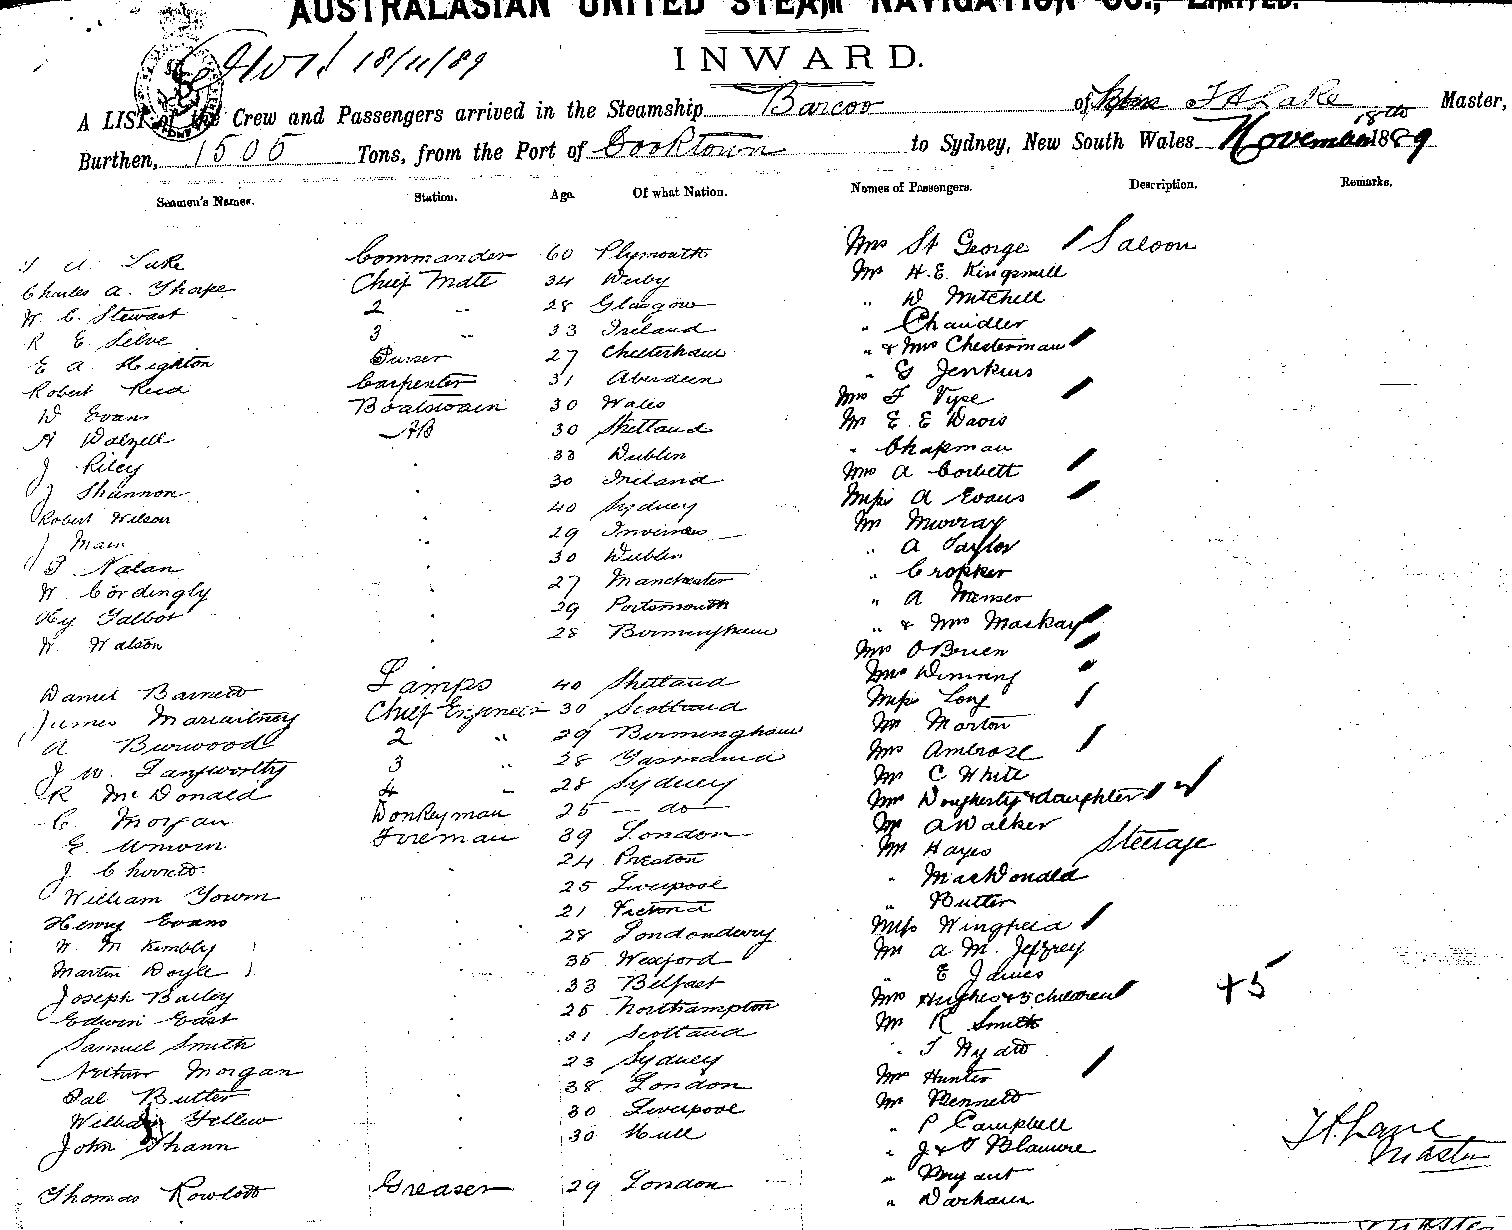 AUSTRALASIAN UNITED STEAM NAVIGATION CO., LIMITED.
18/11/89
INWARD.
A LIST of the Crew and Passengers arrived in the Steamship Barcoo of T A Lake Master,
Burthen, 1505 Tons, from the Port of Cooktown to Sydney, New South Wales 18th November 1889
Seamen's Names. Station. Age Of what Nation. Names of Passengers. Description. Remarks.
T A Lake Commander 60 Plymouth Mrs St George Saloon
Charles A. Thorpe Chief Mate 34 Derby Mr H.E. Kingsmill
W C. Stewart 2 " 28 Glasgow " W Mitchell
R E 3 " 33 Ireland " Chandler
E A Heighton Purser 27 Cheltenham " & Mrs Chesterman
Robert Reid Carpenter 31 Aberdeen " G Jenkins
W Evans Boatswain 30 Wales Mrs F Vyse
A Dalzell AB 30 Shetland Mr E E Davis
J Riley 33 Dublin " Chapman
J Shannon 30 Ireland Mrs A Corbett
Robert Wilson 40 Sydney Miss A Evans
J Main 29 Inverness Mr Murray
T Nalan 30 Dublin " A Taylor
W Cordingly 27 Manchester " Cropker
Hy Talbot 29 Portsmouth " A Manser
W Watson 28 Birmingham " & Mrs Mackay
Mrs O'Brien
Daniel Barnett Lamps 40 Shetland Mrs
James Chief Engineer 30 Scotland Miss Long
A Burwood 2 " 29 Birmingham Mr Morton
J W. 3 " 28 Tasmania Mrs Ambrose
R McDonald 4 " 28 Sydney Mr C White
C Morgan Donkeyman 25 - do - Mrs Dougherty & daughter
E. Unwin Fireman 39 London Mr A Walker
J 24 Preston Mr Hayes Steerage
William 25 Liverpool " MacDonald
Henry Evans 21 Victoria " Butter
W M Kimbly 28 Londonderry Miss Wingfield
Martin Doyle 35 Wexford Mr A. M. Jeffrey
Joseph Bailey 33 Belfast " E James
Edwin East 25 Northampton Mrs Hughes & 5 children +5
Samuel Smith 31 Scotland Mr R Smith
Arthur Morgan 23 Sydney " T
Pal Butler 38 London Mrs Hunter
William Yellew 30 Liverpool Mr Bennett
John 30 Hull " P Campbell
" J & T Blamire
T A Lake
Master
" Bryant
Thomas Rowlott Greaser 29 London "